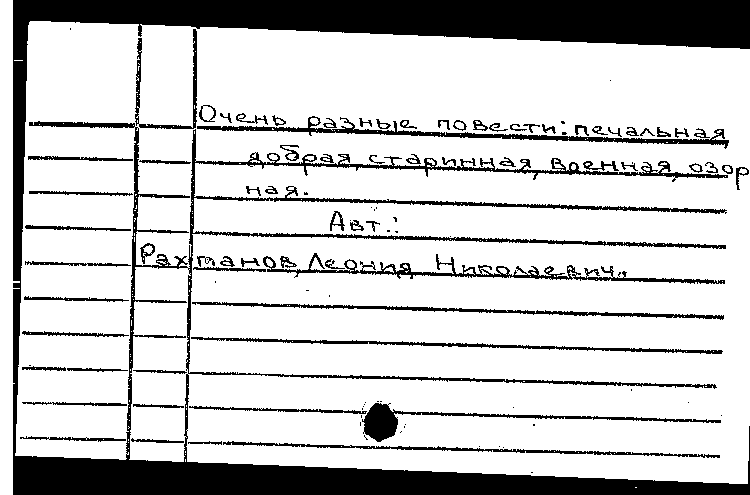 Очень разные повести: печальная,
добрая, старинная, военная, озор
ная.
Авт.:
Рахманов, Леонид Николаевич.